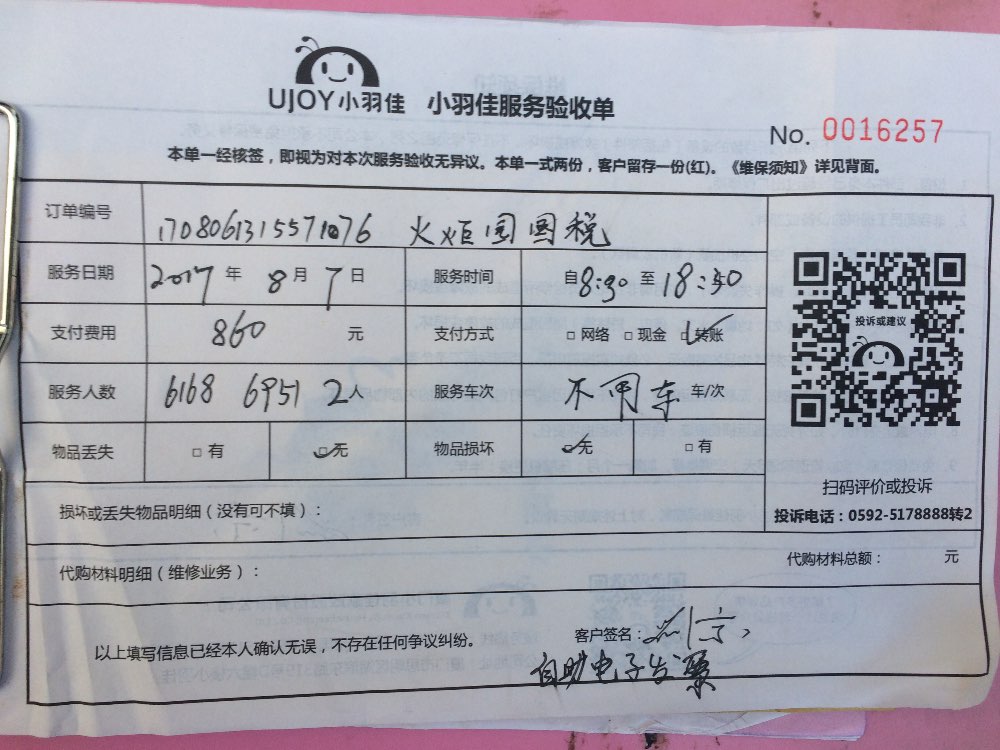 UJOY小羽佳 小羽佳服务验收单
No. 0016257
本单一经核签，即视为对本次服务验收无异议。本单一式两份，客户留存一份(红)。《维保须知》详见背面。
订单编号 1708061315571076 火炬园国税
服务日期 2017 年 8 月 7 日 服务时间 自8:30 至 18:30
支付费用 860 元 支付方式 □ 网络 □ 现金 ☑ 转账
投诉或建议
服务人数 6168 6951 2人 服务车次 不用车 车/次
物品丢失 □ 有 ☑ 无 物品损坏 ☑ 无 □ 有
扫码评价或投诉
损坏或丢失物品明细（没有可不填）：
投诉电话：0592-5178888转2
代购材料明细（维修业务）： 代购材料总额： 元
以上填写信息已经本人确认无误，不存在任何争议纠纷。 客户签名：
自助电子发票